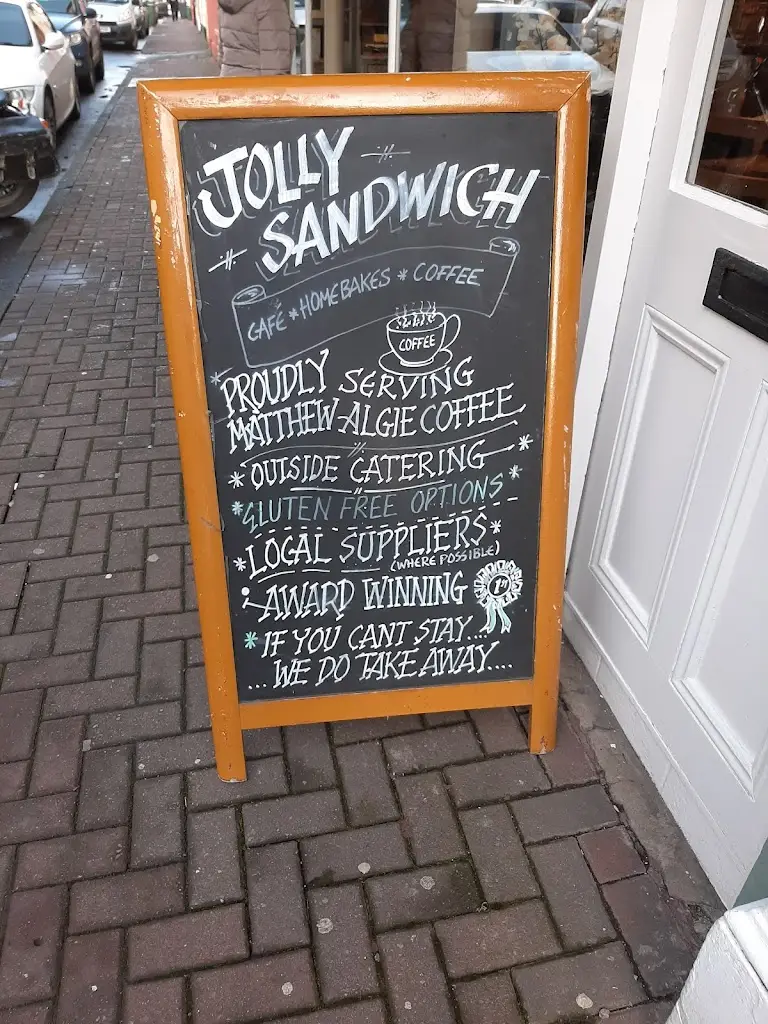 JOLLY
SANDWICH
CAFÉ * HOMEBAKES * COFFEE
COFFEE
PROUDLY SERVING
MATTHEW ALGIE COFFEE
* OUISIDE CATERING *
* GLUTEN FREE OPTIONS *
* LOCAL SUPPLIERS *
(WHERE POSSIBLE)
AWARD WINNING
1ST
* IF YOU CANT STAY....
...WE DO TAKE AWAY....